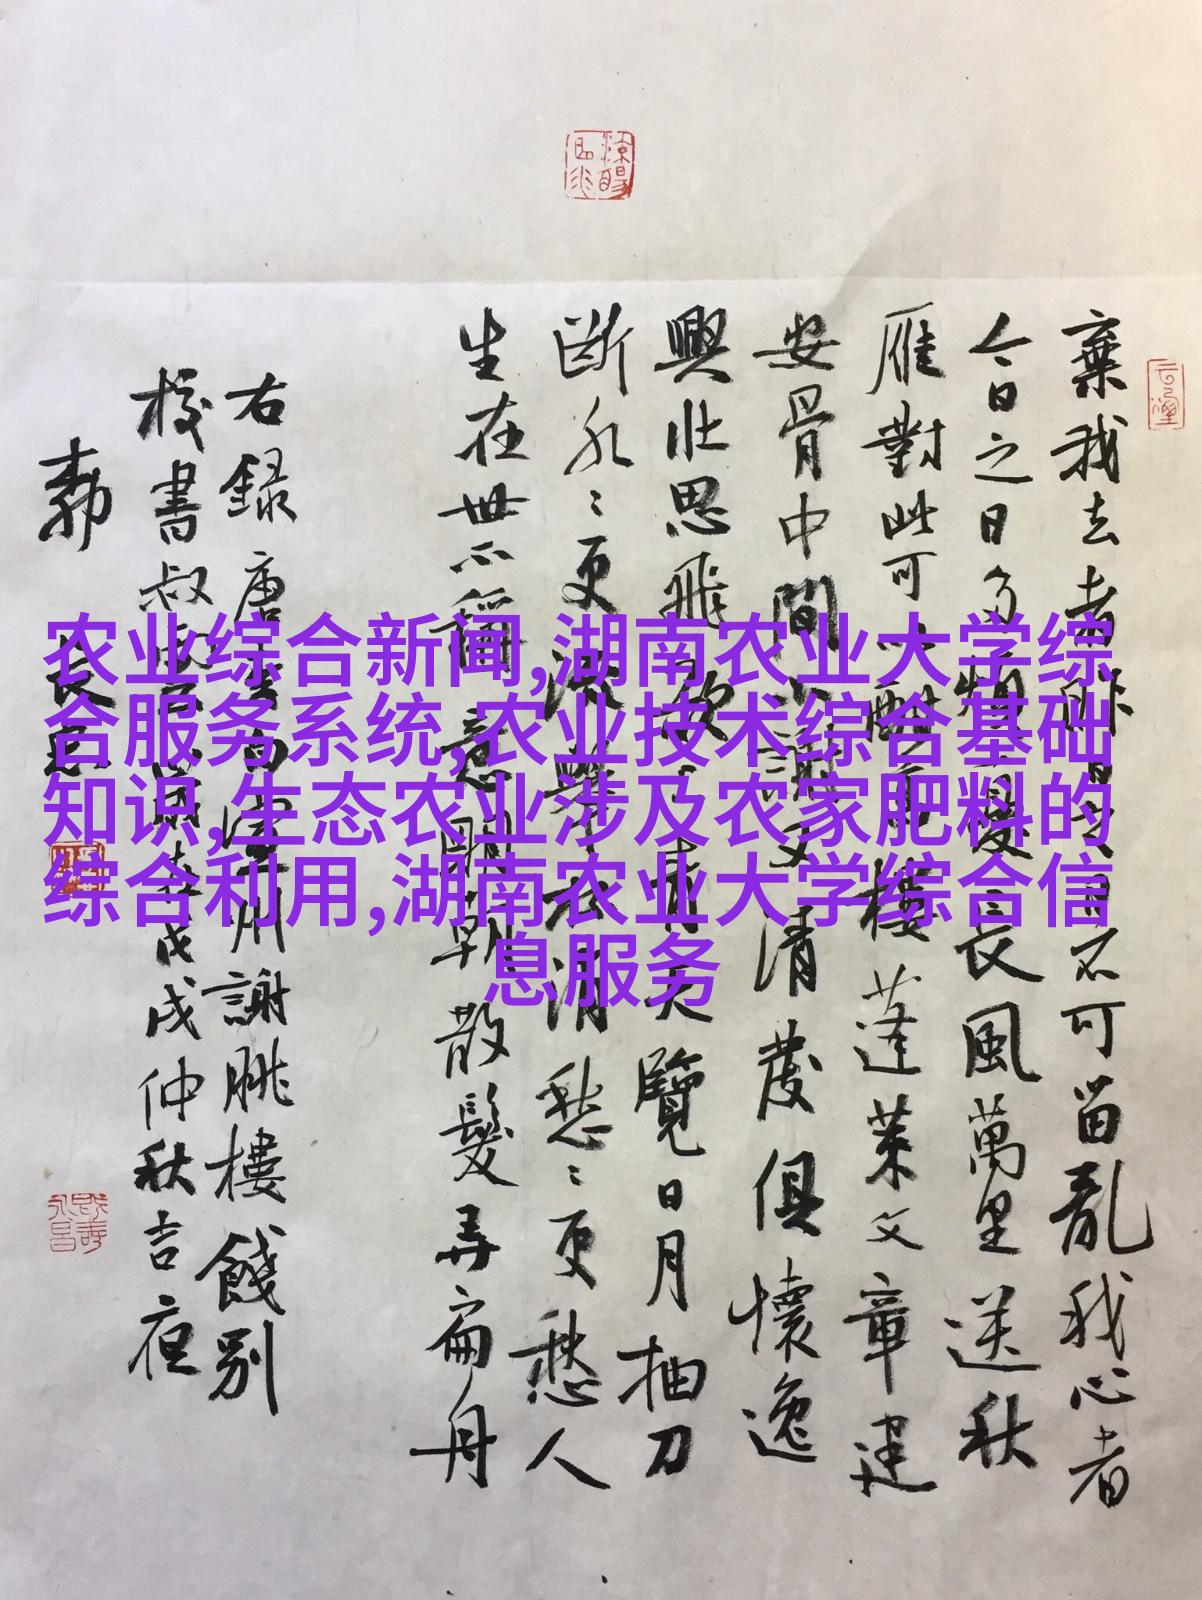 棄我去者昨日之日不可留亂我心者
今日之日多煩憂長風萬里送秋
雁對此可以酣高樓蓬萊文章建
安骨中間小謝又清發俱懷逸
興壯思飛欲上青天覽日月抽刀
斷水〻更流舉杯消愁〻更愁人
生在世不稱意明朝散髮弄扁舟
右錄唐李白宣州謝朓樓餞別
校書叔雲歲在戊戌仲秋吉夜
农业综合新闻,湖南农业大学综
合服务系统,农业技术综合基础
知识,生态农业涉及农家肥料的
综合利用,湖南农业大学综合信
息服务